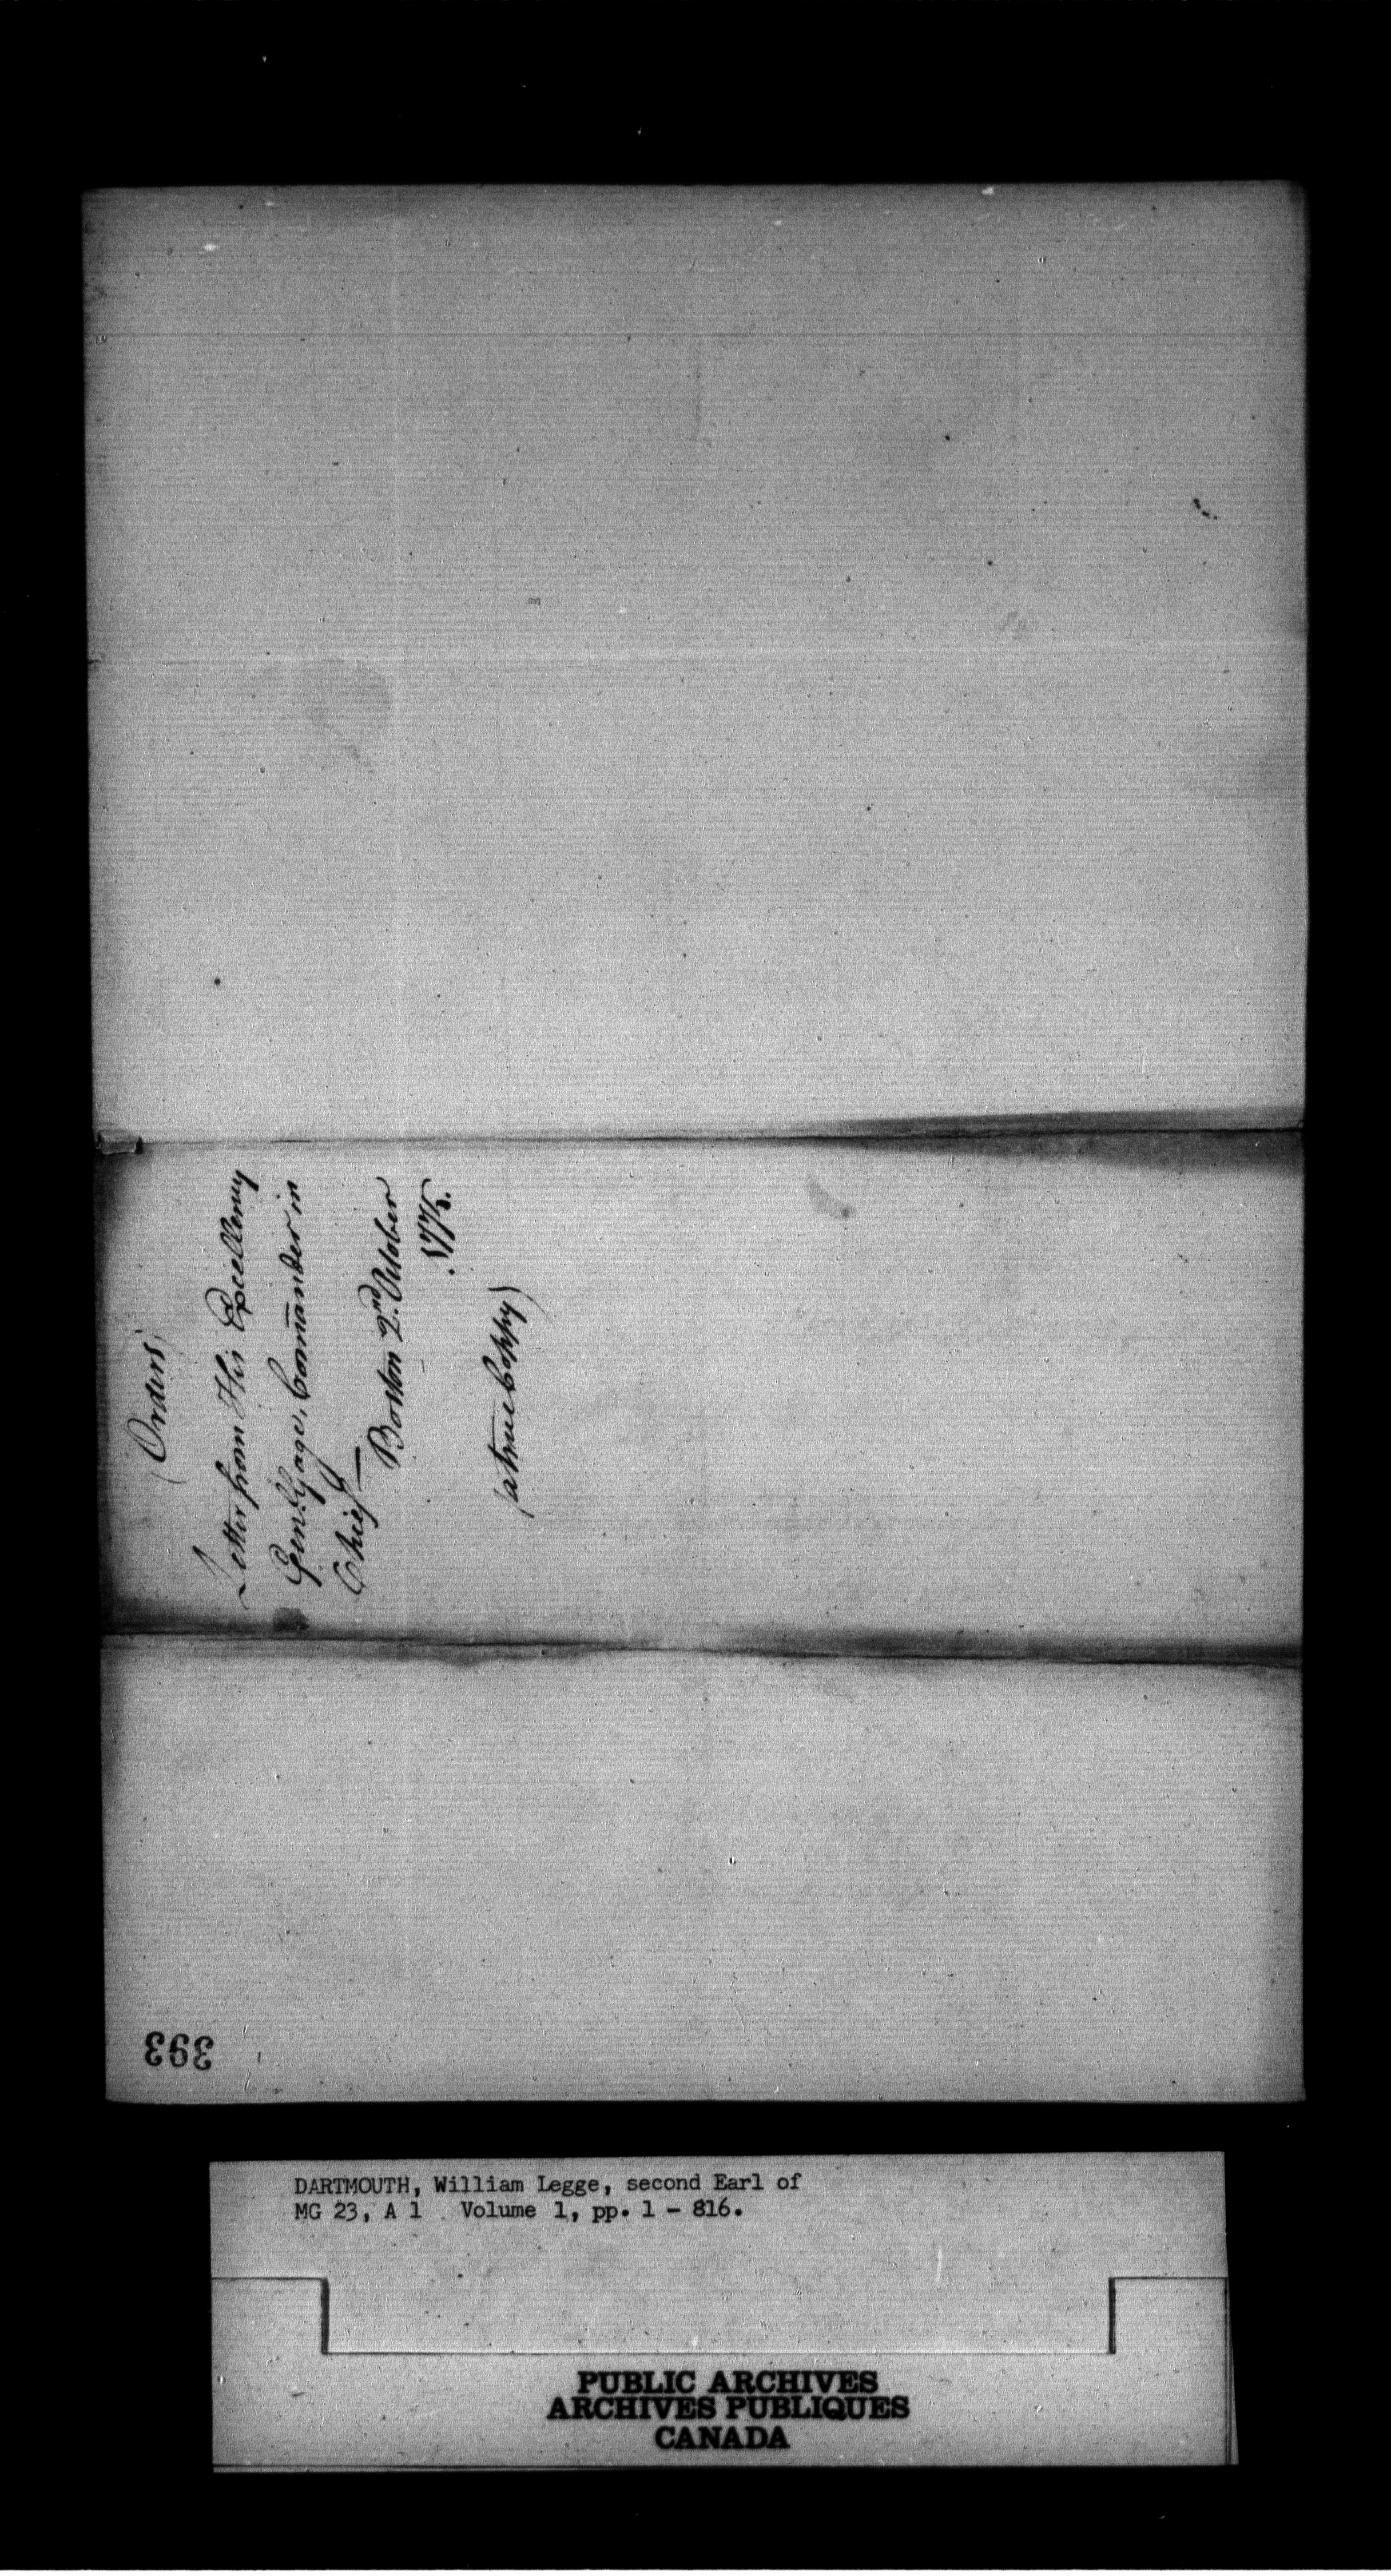 (Orders)
Letter from His Excellency
Genl. Gage, Com̄ander in
Chief —
Boston 2nd. October
1775.
(a true Coppy)
393
DARTMOUTH, William Legge, second Earl of
MG 23, A 1 Volume 1, pp. 1 - 816.
PUBLIC ARCHIVES
ARCHIVES PUBLIQUES
CANADA